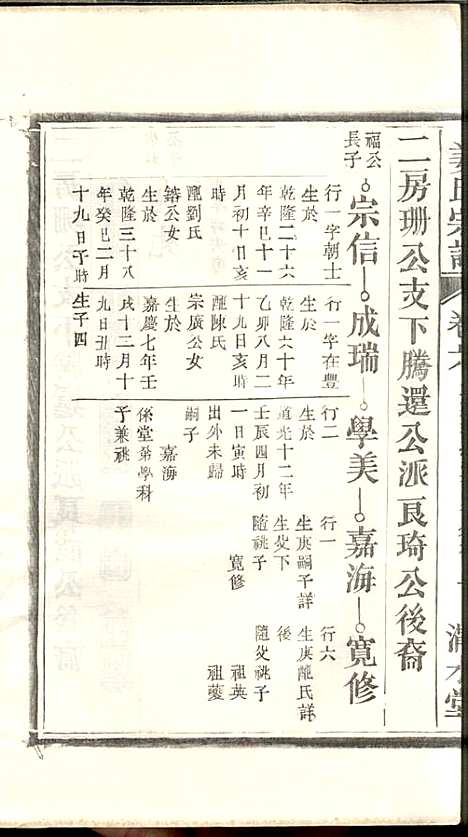 二房珊公支下騰還公派艮琦公後裔
福公長子
宗信
成瑞
學美
嘉海
寬修
行一字朝士
生於
乾隆二十六
年辛巳十一
月初十日亥
時
配劉氏
公女
生於
乾隆三十八
年癸巳二月
十九日子時
生子四
行一字在豐
生於
乾隆六十年
乙卯八月二
十九日亥時
配陳氏
宗廣公女
生於
嘉慶七年壬
戌十二月十
九日丑時
行二
生於
道光十二年
壬辰四月初
一日寅時
出外未歸
嗣子
嘉海
係堂弟學科
子兼祧
行一
生庚嗣子詳
生父下
隨祧子
寬修
行六
生庚配氏詳
後
隨父祧子
祖英
祖薆